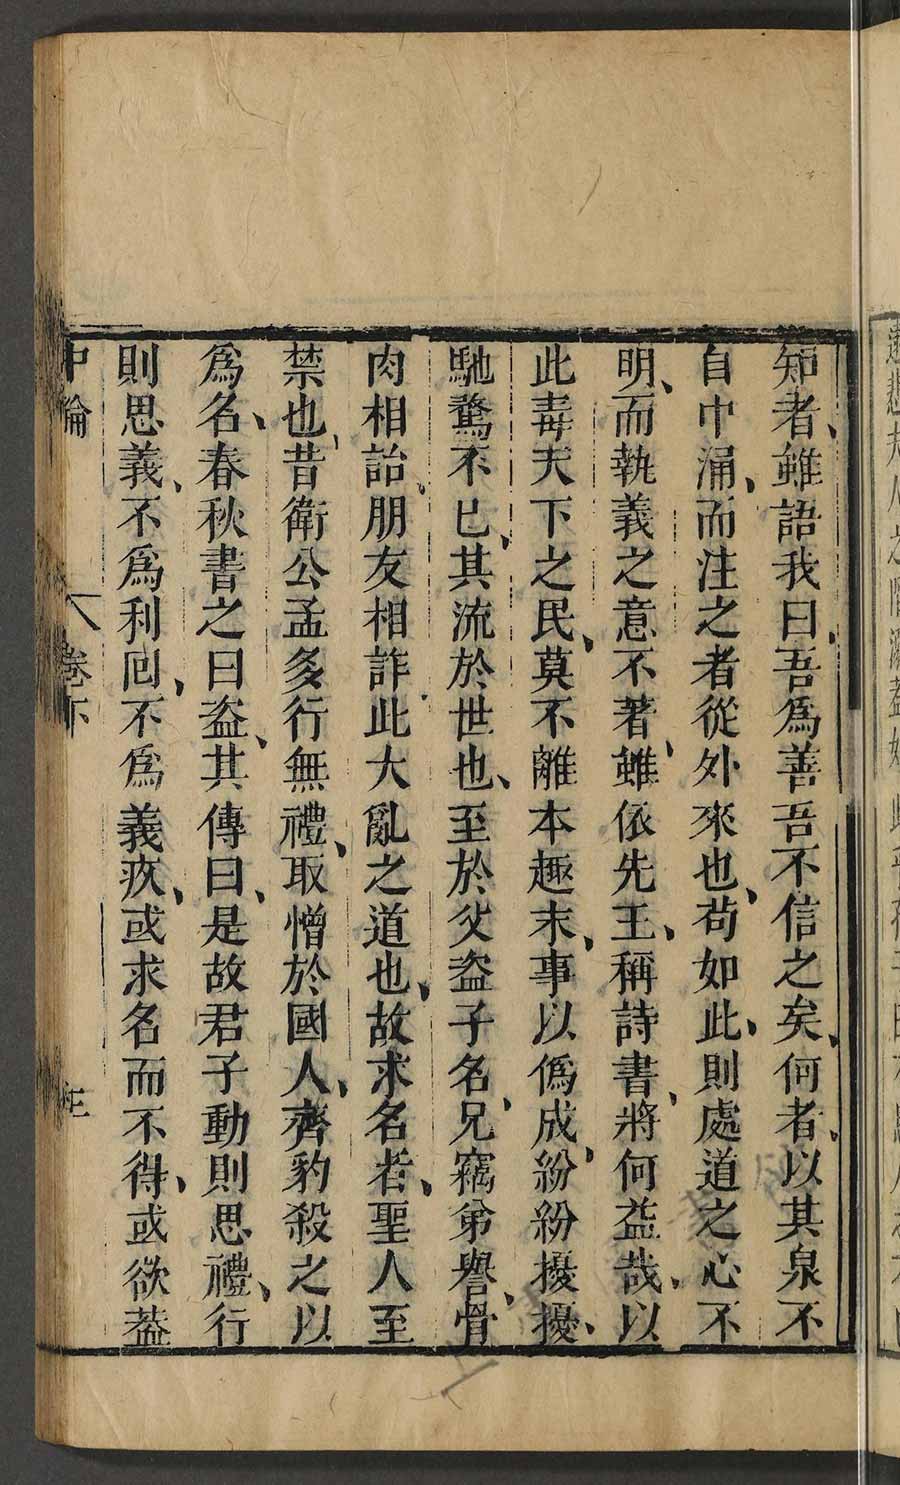 知者、雖語我曰、吾爲善吾不信之矣、何者、以其泉不
自中涌、而注之者從外來也、苟如此、則處道之心不
明、而執義之意不著、雖依先王、稱詩書、將何益哉、以
此毒天下之民、莫不離本趣末、事以僞成、紛紛擾擾、
馳騖不已、其流於世也、至於父盗子名、兄竊弟譽、骨
肉相詒、朋友相詐、此大亂之道也、故求名者、聖人至
禁也、昔衛公孟多行無禮、取憎於國人、齊豹殺之以
爲名、春秋書之曰盗、其傳曰、是故君子動則思禮、行
則思義、不爲利回、不爲義疚、或求名而不得、或欲葢
中論 卷下